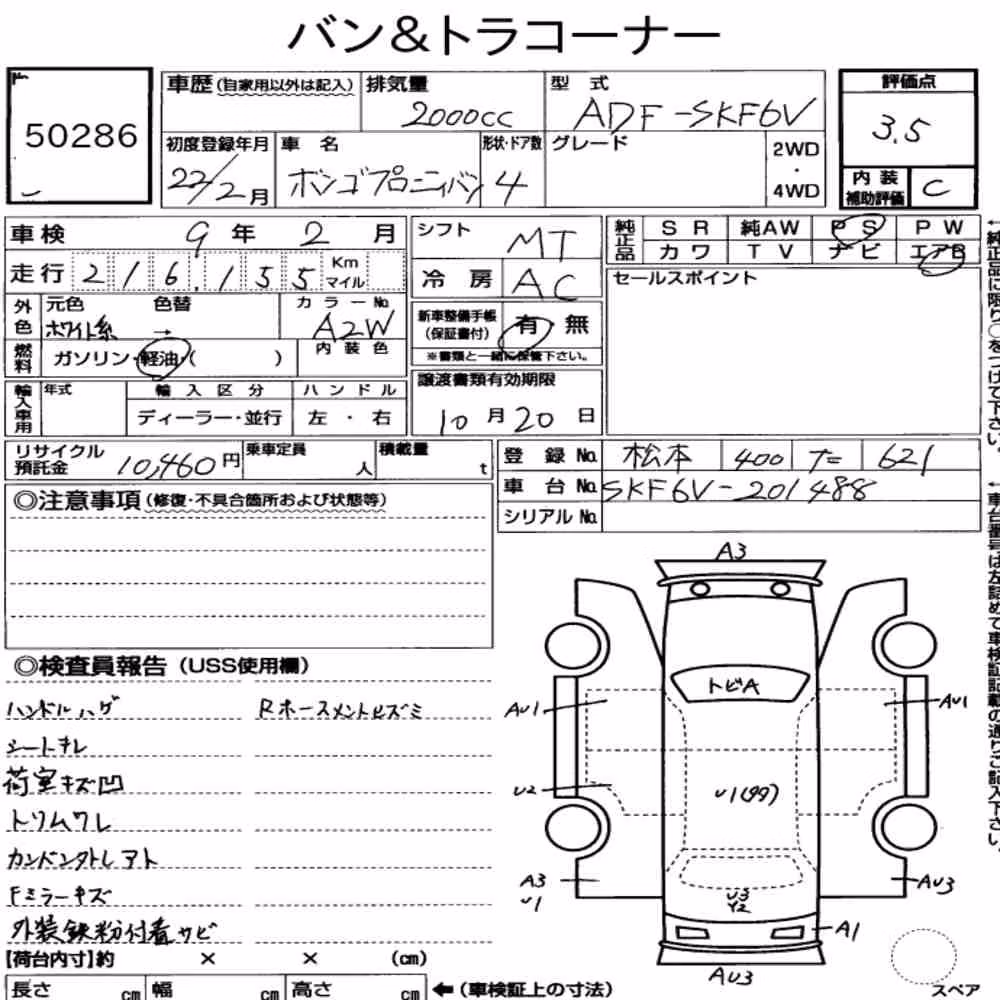 バン&トラコーナー
50286
車歴(自家用以外は記入)
排気量
2000cc
型式
ADF-SKF6V
評価点
3.5
初度登録年月
22/2月
車名
ボンゴブローニィバン
形状・ドア数
4
グレード
2WD
・
4WD
内装
補助評価
C
車検 9年 2月
走行 216,155 Km マイル
外色
元色
色替
ホワイト系 →
カラーNo.
A2W
燃料
ガソリン・軽油・( )
内装色
輸入車用
年式
輸入区分
ハンドル
ディーラー・並行
左・右
シフト
MT
冷房
AC
新車整備手帳
(保証書付)
有 無
※書類と一緒に保管下さい。
譲渡書類有効期限
10月20日
純正品
SR 純AW PS PW
カワ TV ナビ エアB
セールスポイント
←純正品に限り○をつけて下さい。
リサイクル
預託金
10,460円
乗車定員
人
積載量
t
登録No. 松本 400 た 621
車台No. SKF6V-201488
シリアルNo.
←車台番号は左詰めで車検証記載の通りご記入下さい。
◎注意事項(修復・不具合箇所および状態等)
◎検査員報告(USS使用欄)
ハンドルハゲ
Rホースメントヒズミ
シートキレ
荷室キズ凹
トリムワレ
カンバントレアト
Fミラーキズ
外装鉄粉付着サビ
A3
トビA
AU1
AU1
U2
U1(99)
A3
U1
AU3
U3
Y2
A1
AU3
スペア
【荷台内寸】約 × × (cm)
長さ cm 幅 cm 高さ cm ←(車検証上の寸法)